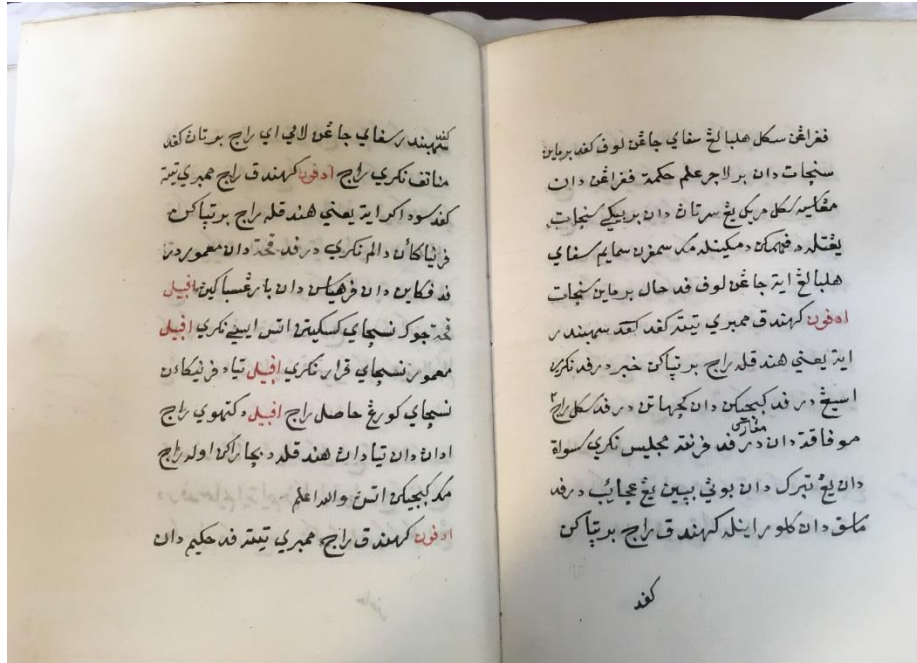 فغراغن سکل هلبالغ سفاي جاغن لوف کفد برماين
سنجات دان برلاجر علم حکمة فغراغن دان
سکل مريک يغ سرتاث دان بربيکي سنجات
يغتله دفهمکن دمکينله مک سمفرن سمايم سفاي
هلبالغ ايت جاغن لوف فد حال برماين سنجات
ادفون کهندق ممبري تيته کفد کفد سمهبندر
ايت يعني هندقله راج برتپاکن خبر درفد نکري
اسيغ درفد کبجيکن دان کجهاتن درفد سکل راج٢
موفاقة دان درفد فرنته مجليس نکري سواة
دان يغ تبرک دان بوپي بپين يغ عجايب درفد
ماسق دان کلور اينله کهندق راج برتپاکن
کفد
سمهبندر سفاي جاغن لالي اي راج برتاث کفد
مناتف نکري راج ادفون کهندق راج ممبري تيته
کفد سوداکر ايت يعني هندقله راج برتپاکن
فرنياکاءن دالم نکري درفد قحة دان معمور در
فد فکاين دان فرهياسن دان بارغسباکين افبيل
قحة جوک نسچاي کسکيتن اتس ايسي نکري افبيل
معمور نسچاي قرار نکري افبيل تياد فرنيکاءن
نسچاي کورغ حاصل راج افبيل دکتهوي راج
ادان دان تيادان هندقله دبچاراکن اوله راج
مک کبجيکن اتسڽ والله اعلم
ادفون کهندق راج ممبري تيته فد حکيم دان